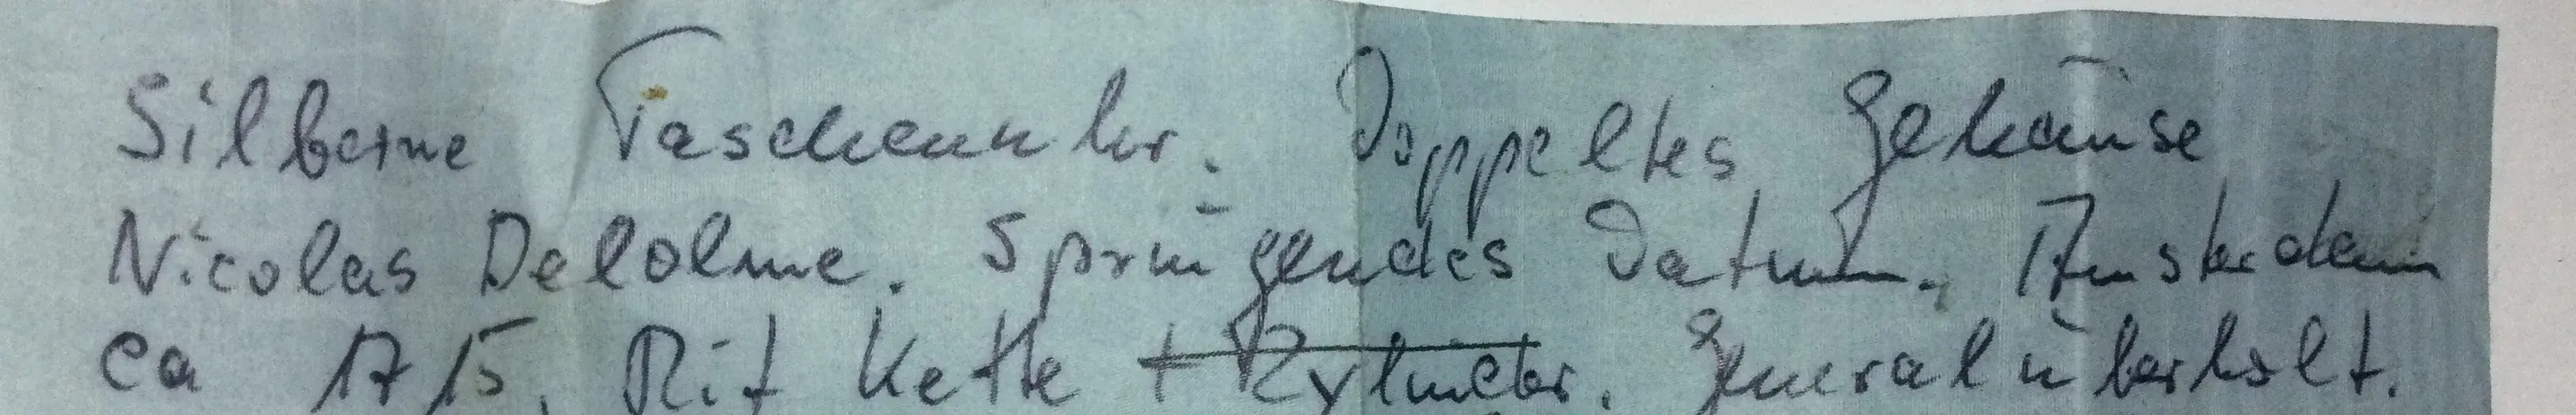 Silberne Taschenuhr. Doppeltes Gehäuse
Nicolas Delolme. Springendes Datum. Amsterdam
ca 1715. Mit Kette + Zylinder. Generalüberholt.